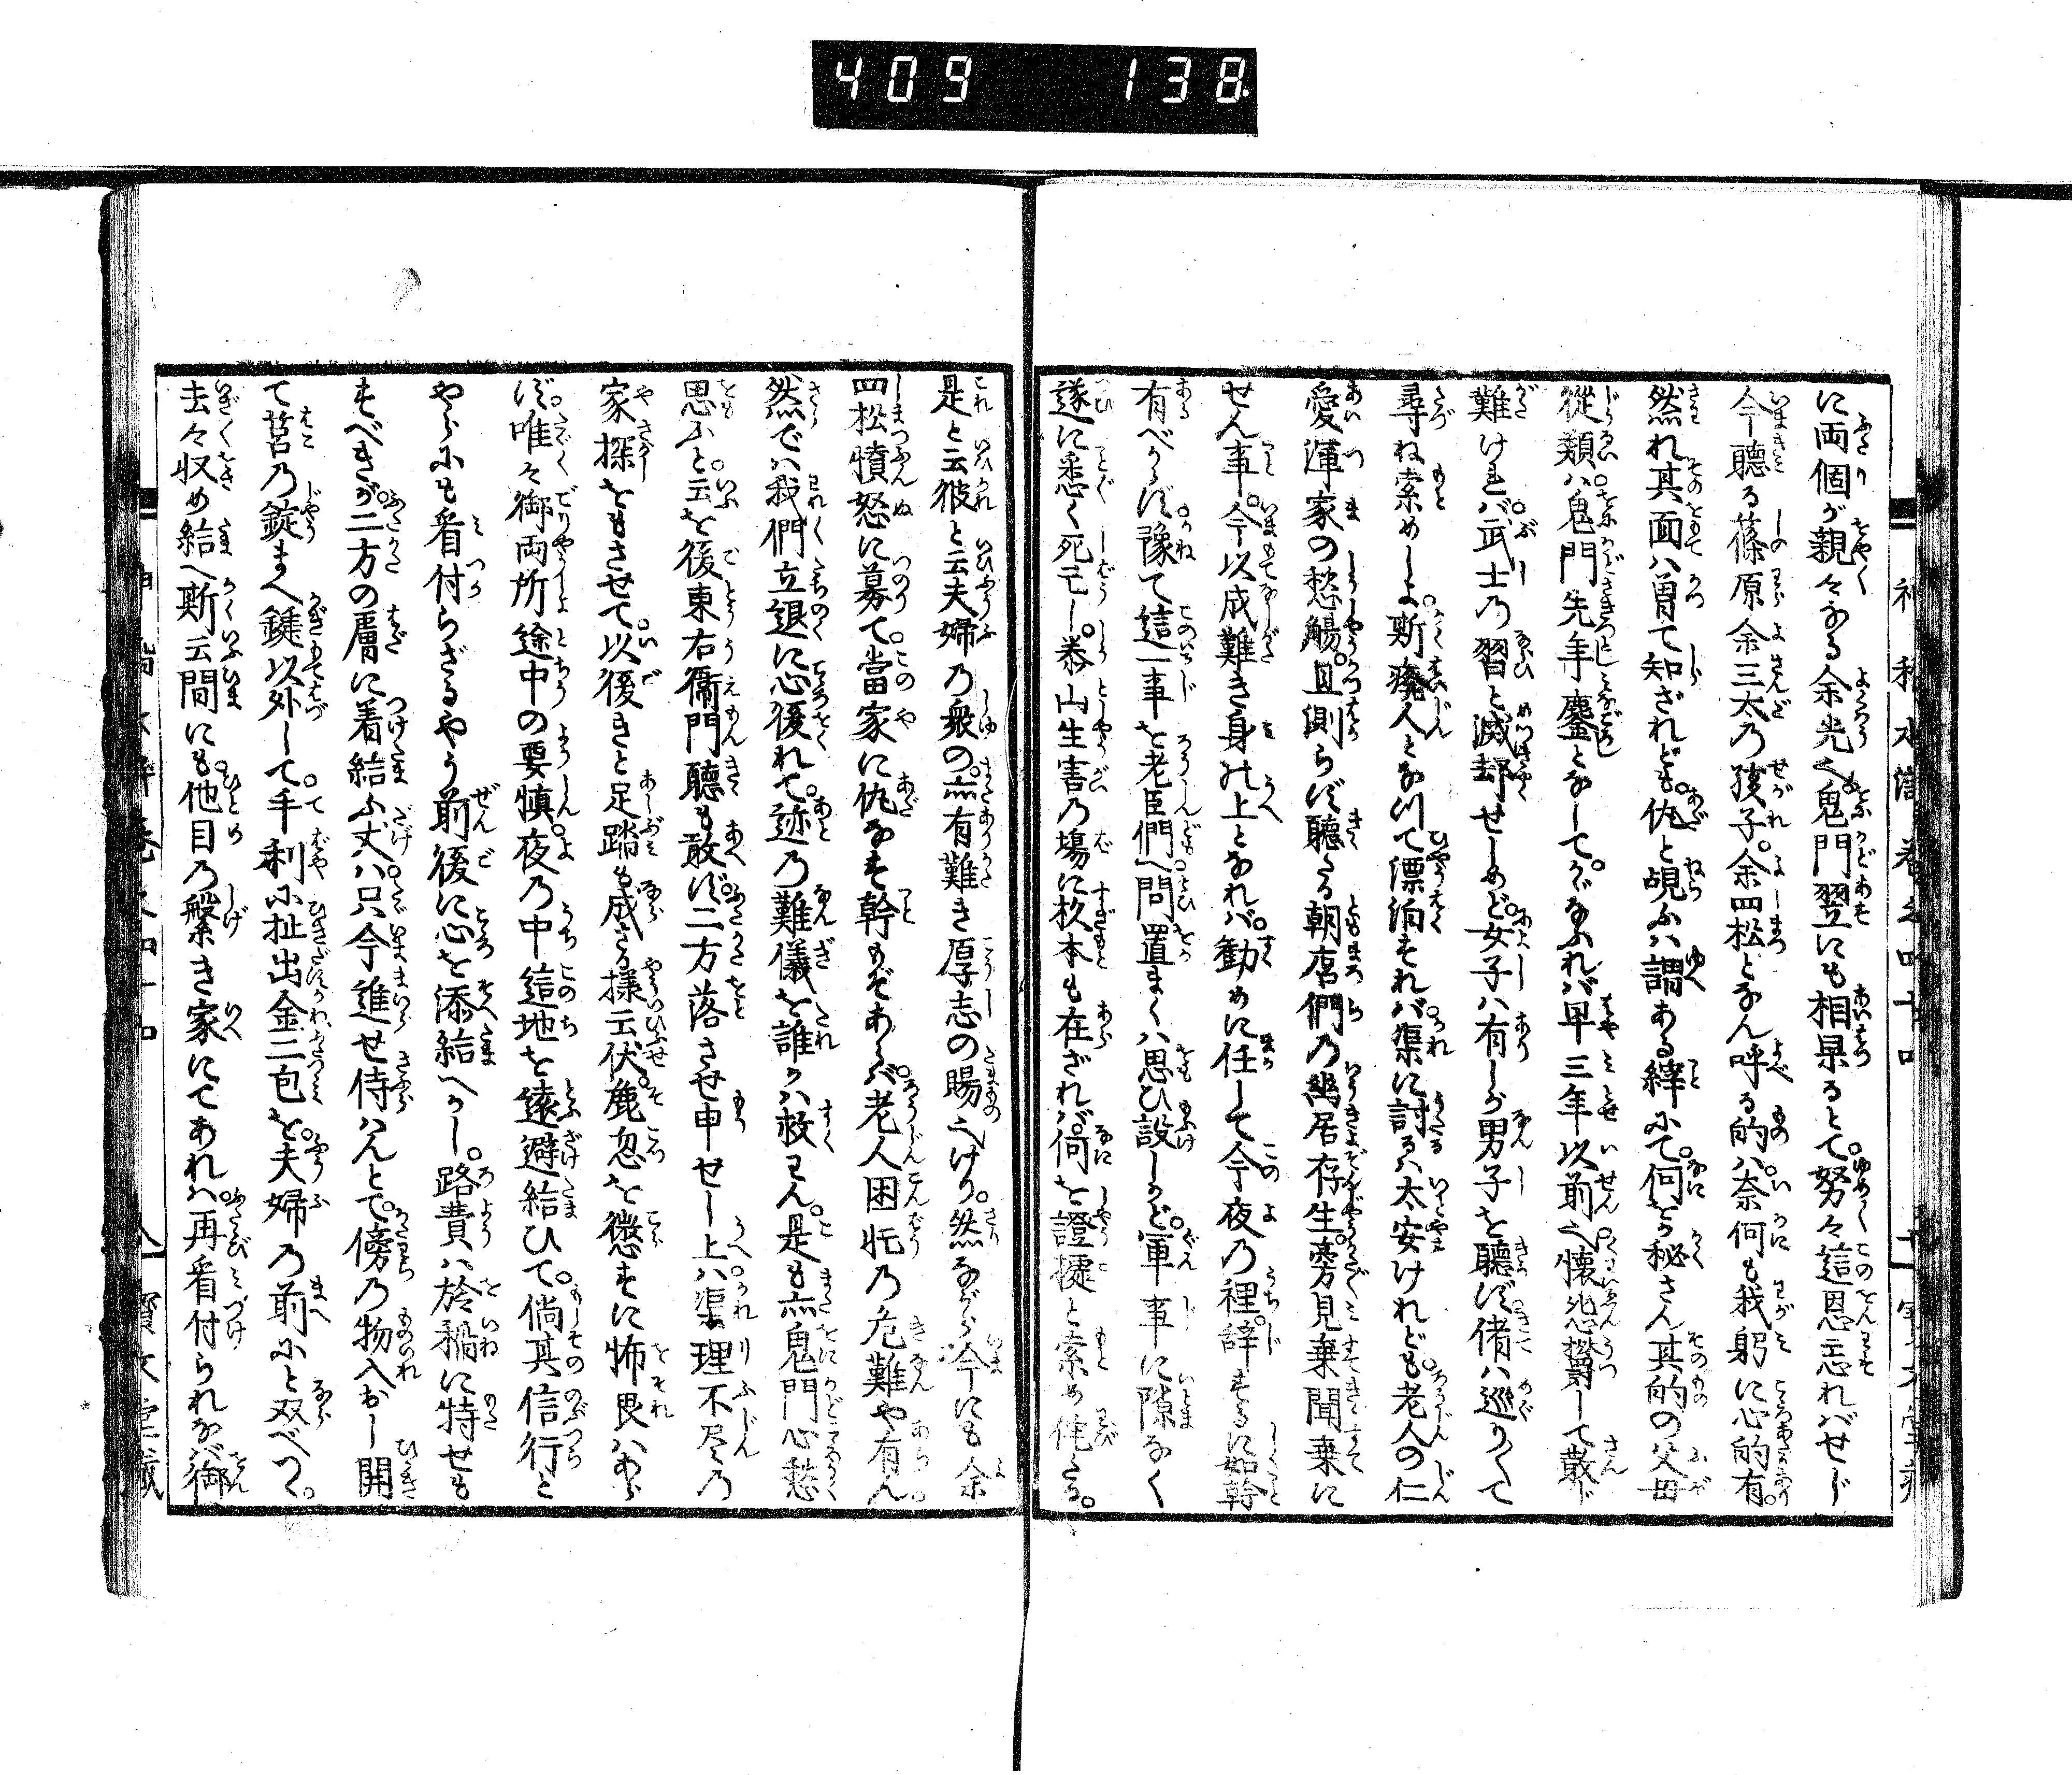 409 138
に両個が親々なる余光之鬼門翌にも相果るとて。努々這恩忘ればせじ
今聴る篠原余三太乃孩子。余四松となん呼る的ハ奈何も我躬に心的有。
然れ其面ハ曽て知ざれども。仇と覘ふハ謂ある縡にて。何をか秘さん其的の父母
従類ハ鬼門先年鏖となして。かぞふれバ早三年以前之懐𢙣欝して散じ
難けれバ武士乃習と滅却せしめど。女子ハ有しが男子を聴ず。偖ハ巡りて
尋ね索めしよ。斯癈人となつて漂泊すれバ。渠に討るハ太安けれども。老人の仁
愛渾家の愁觴。且測らず聴たる朝店們乃幽居存生。旁見棄聞棄に
せん事。今以成難き身の上となれバ。勧めに任して今夜乃裡。辞するに如幹
有べからず。豫て這一事を老臣們へ問置まくハ思ひ設しかど。軍事に隙なく
遂に悉く死亡し。泰山生害乃場に杦本も在ざれバ。何を證據と索め侘たる。
是と云彼と云夫婦乃衆の。亦有難き厚志の賜之けり。然ながら今にも余
四松憤怒に募て。當家に仇なす幹もぞあらバ。老人困厄乃危難や有ん
然でハ我們立退に心後れて。迹乃難儀を誰かハ救ハん。是も亦鬼門心愁
思ふと。云を後東右衞門聴も敢ず。二方落させ申せし上ハ。渠理不尽乃
家探をもさせて。以後きと足踏も成さる様云伏。麁忽を懲すに怖畏ハあら
ず。唯々御両所途中の要慎。夜乃中這地を遠避給ひて。倘其信行と
やらにも看付らざるやう前後に心を添給へかし。路費ハ於稲に持せも
すべきが。二方の膚に着給ふ丈ハ。只今進せ侍ハんとて。傍乃物入おし開
て筥乃錠まへ鍵以外して。手利に扯出金二包を。夫婦乃前にと双べつゝ。
去々収め給へ斯云間にも。他目乃繁き家にてあれハ。再看付られなバ御